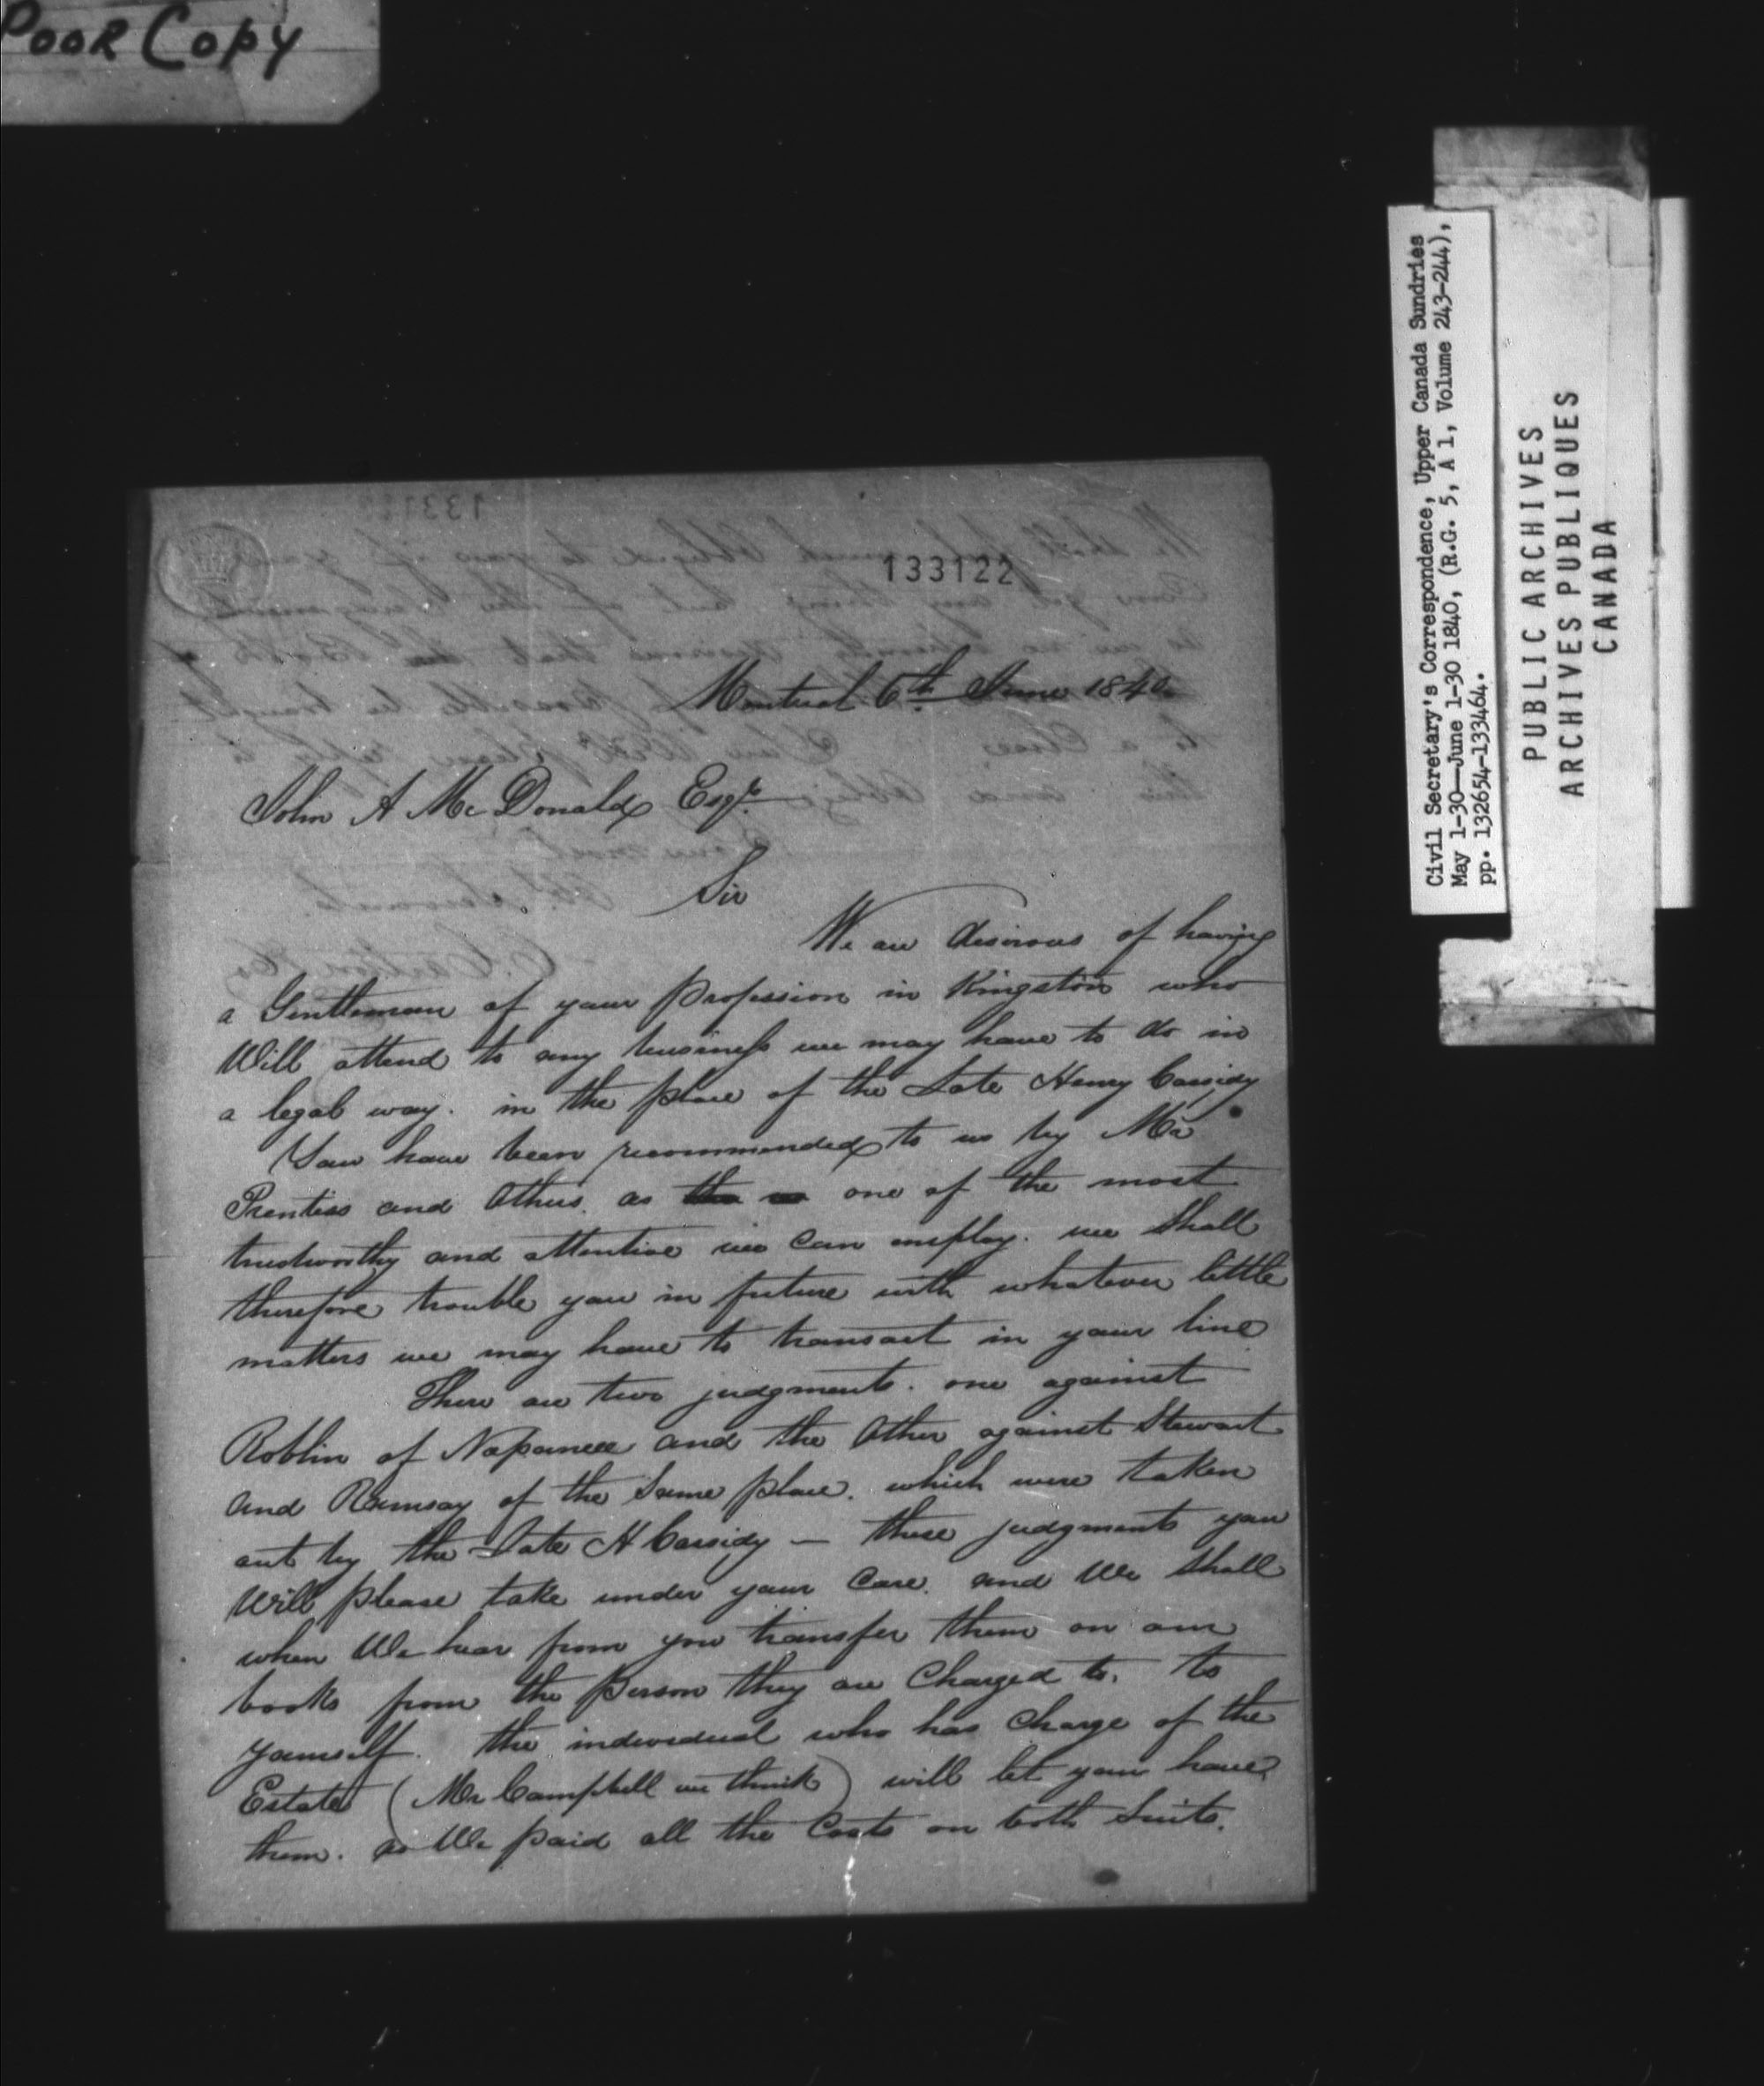 Poor Copy
133122
Montreal 6th June 1840.
John A McDonald Esqr.
Sir
We are desirous of having
a Gentleman of your profession in Kingston who
Will attend to any business we may have to do in
a legal way. in the place of the Late Henry Cassidy
You have been recommended to us by Mr
Prentiss and Others. as one of the most
trustworthy and attentive we can employ. we shall
therefore trouble you in future with whatever little
matters we may have to transact in your line
There are two judgments. one against
Roblin of Napanee and the Other against Stewart
and Ramsay of the Same place. which were taken
out by the Late H Cassidy — these judgments you
Will please take under your Care. and We shall
when We hear from you transfer them on our
books from the person they are Charged to, to
yourself. the individual who has Charge of the
Estate (Mr Campbell we think) will let you have
them. as We paid all the Costs on both Suits.
Civil Secretary's Correspondence, Upper Canada Sundries
May 1-30—June 1-30 1840, (R.G. 5, A 1, Volume 243-244),
pp. 132654-133464.
PUBLIC ARCHIVES
ARCHIVES PUBLIQUES
CANADA